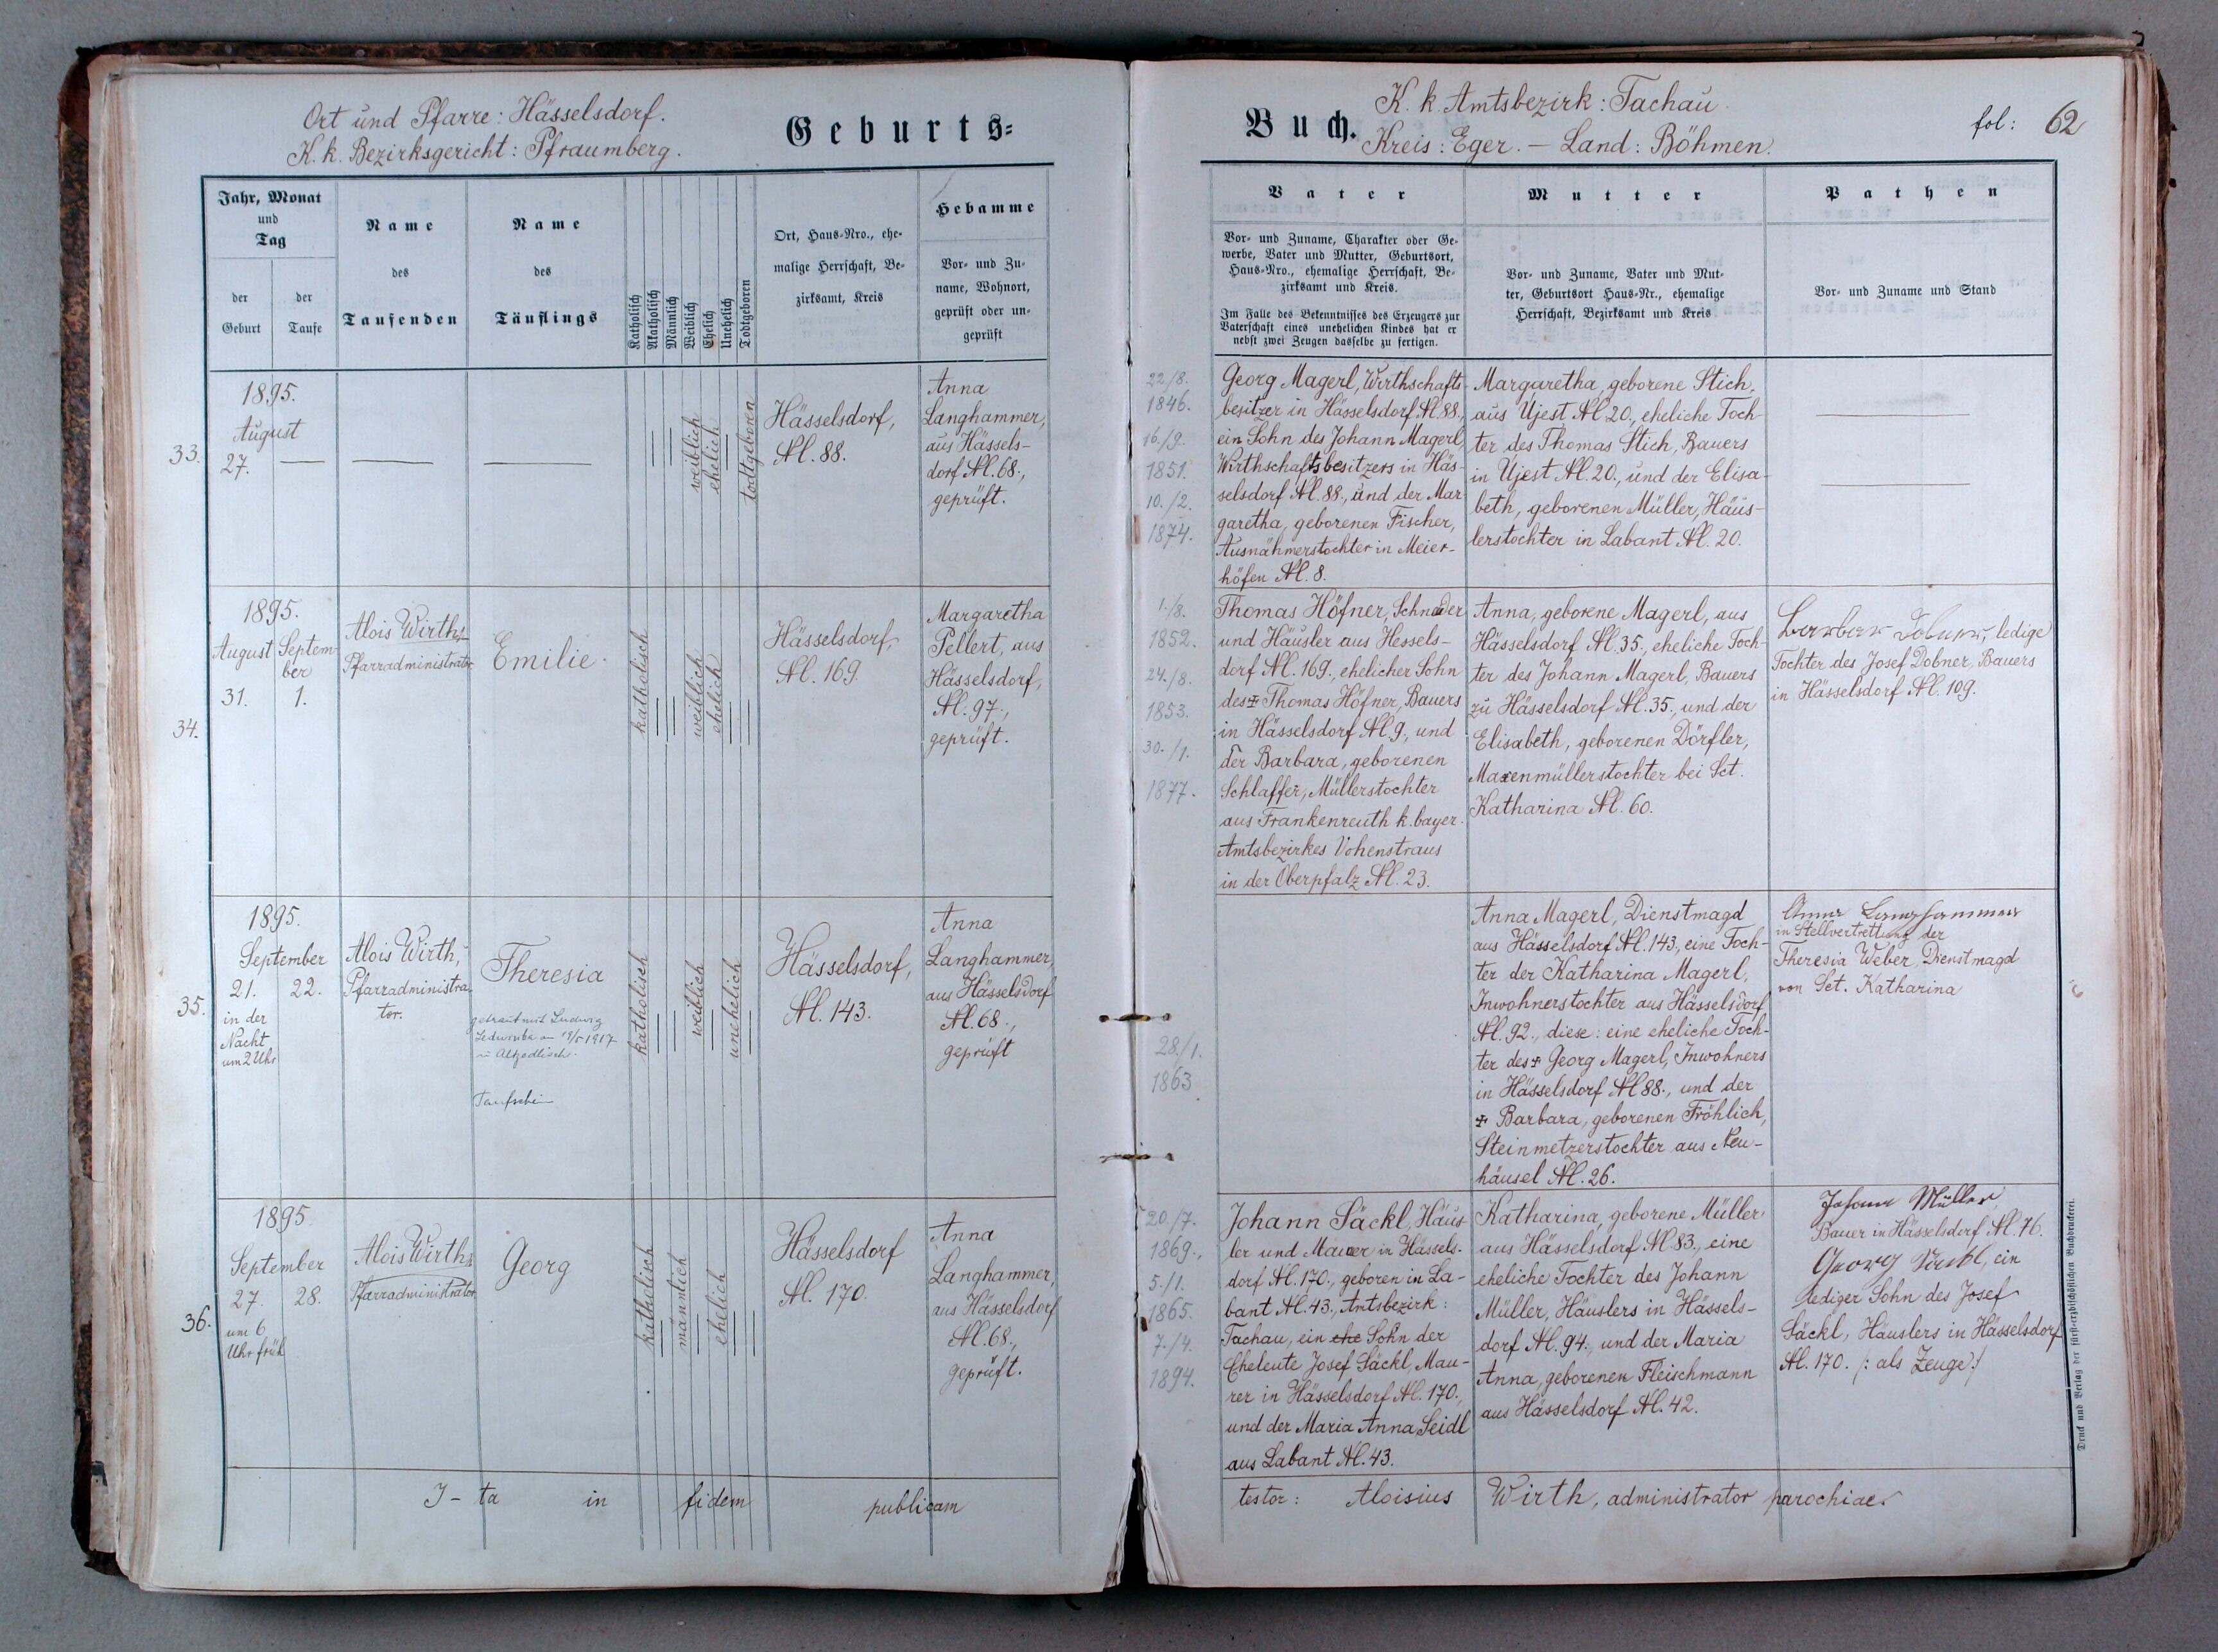 Ort und Pfarre: Hässelsdorf.
K. k. Bezirksgericht: Pfraumberg.
Geburts=
Jahr, Monat
und
Tag
der
Geburt
der
Taufe
Name
des
Taufenden
Name
des
Täuflings
Katholisch
Akatholisch
Männlich
Weiblich
Ehelich
Unehelich
Todtgeboren
Ort, Haus-Nro., ehe-
malige Herrschaft, Be-
zirksamt, Kreis
Hebamme
Vor- und Zu-
name, Wohnort,
geprüft oder un-
geprüft
33.
1895.
August
27.
weiblich
ehelich
todtgeboren
Hässelsdorf,
Nl. 88.
Anna
Langhammer,
aus Hässels-
dorf Nl. 68.,
geprüft.
34.
1895.
August
31.
Septem-
ber
1.
Alois Wirth,
Pfarradministrator
Emilie.
katholisch
weiblich
ehelich
Hässelsdorf,
Nl. 169.
Margaretha
Pellert, aus
Hässelsdorf,
Nl. 97.,
geprüft.
35.
1895.
September
21.
22.
in der
Nacht
um 2 Uhr
Alois Wirth,
Pfarradministra-
tor.
Theresia
getraut mit Ludwig
1917
Taufschein
katholisch
weiblich
unehelich
Hässelsdorf,
Nl. 143.
Anna
Langhammer,
aus Hässelsdorf
Nl. 68.,
geprüft
36.
1895
September
27.
28.
um 6
Uhr früh
Alois Wirth,
Pfarradministrator
Georg
katholisch
männlich
ehelich
Hässelsdorf
Nl. 170.
Anna
Langhammer,
aus Hässelsdorf
Nl. 68.,
geprüft.
I-ta in fidem publicam
Buch.
K. k. Amtsbezirk: Tachau.
Kreis: Eger. – Land: Böhmen.
fol: 62
Vater
Vor- und Zuname, Charakter oder Ge-
werbe, Vater und Mutter, Geburtsort,
Haus-Nro., ehemalige Herrschaft, Be-
zirksamt und Kreis.
Im Falle des Bekenntnisses des Erzeugers zur
Vaterschaft eines unehelichen Kindes hat er
nebst zwei Zeugen dasselbe zu fertigen.
Mutter
Vor- und Zuname, Vater und Mut-
ter, Geburtsort Haus-Nr., ehemalige
Herrschaft, Bezirksamt und Kreis
Pathen
Vor- und Zuname und Stand
22./8.
1846.
16./9.
1851.
10./2.
1874.
Georg Magerl, Wirthschafts-
besitzer in Hässelsdorf Nl. 88.,
ein Sohn des Johann Magerl,
Wirthschaftsbesitzers in Häs-
selsdorf Nl. 88., und der Mar-
garetha, geborenen Fischer,
Ausnähmerstochter in Meier-
höfen Nl. 8.
Margaretha, geborene Stich,
aus Ujest Nl. 20., eheliche Toch-
ter des Thomas Stich, Bauers
in Ujest Nl. 20., und der Elisa-
beth, geborenen Müller, Häus-
lerstochter in Labant Nl. 20.
1./8.
1852.
24./8.
1853.
30./1.
1877.
Thomas Höfner, Schneider
und Häusler aus Hessels-
dorf Nl. 169., ehelicher Sohn
des ✠ Thomas Höfner, Bauers
in Hässelsdorf Nl. 9., und
der Barbara, geborenen
Schlaffer, Müllerstochter
aus Frankenreuth k. bayer.
Amtsbezirkes Vohenstraus
in der Oberpfalz Nl. 23.
Anna, geborene Magerl, aus
Hässelsdorf Nl. 35., eheliche Toch-
ter des Johann Magerl, Bauers
zu Hässelsdorf Nl. 35., und der
Elisabeth, geborenen Dörfler,
Maxenmüllerstochter bei Sct.
Katharina Nl. 60.
Barbar Dobner, ledige
Tochter des Josef Dobner, Bauers
in Hässelsdorf Nl. 109.
28./1.
1863
Anna Magerl, Dienstmagd
aus Hässelsdorf Nl. 143., eine Toch-
ter der Katharina Magerl,
Inwohnerstochter aus Hässelsdorf
Nl. 92., diese: eine eheliche Toch-
ter des ✠ Georg Magerl, Inwohners
in Hässelsdorf Nl 88., und der
✠ Barbara, geborenen Fröhlich,
Steinmetzerstochter aus Neu-
häusel Nl. 26.
Anna Langhammer
in Stellvertrettung der
Theresia Weber, Dienstmagd
von Sct. Katharina
20./7.
1869.,
5./1.
1865.
7./4.
1894.
Johann Säckl, Häus-
ler und Maurer in Hässels-
dorf Nl. 170., geboren in La-
bant Nl. 43., Amtsbezirk:
Tachau, ein ehe Sohn der
Eheleute Josef Säckl, Mau-
rer in Hässelsdorf Nl. 170.,
und der Maria Anna Seidl
aus Labant Nl. 43.
Katharina, geborene Müller
aus Hässelsdorf Nl 83., eine
eheliche Tochter des Johann
Müller, Häuslers in Hässels-
dorf Nl. 94., und der Maria
Anna, geborenen Fleischmann
aus Hässelsdorf Nl. 42.
Johann Müller,
Bauer in Hässelsdorf Nl. 76.
Georg Säckl, ein
lediger Sohn des Josef
Säckl, Häuslers in Hässelsdorf
Nl. 170. /: als Zeuge:/
testor: Aloisius Wirth, administrator parochiae.
Druck und Verlag der fürst-erzbischöflichen Buchdruckerei.